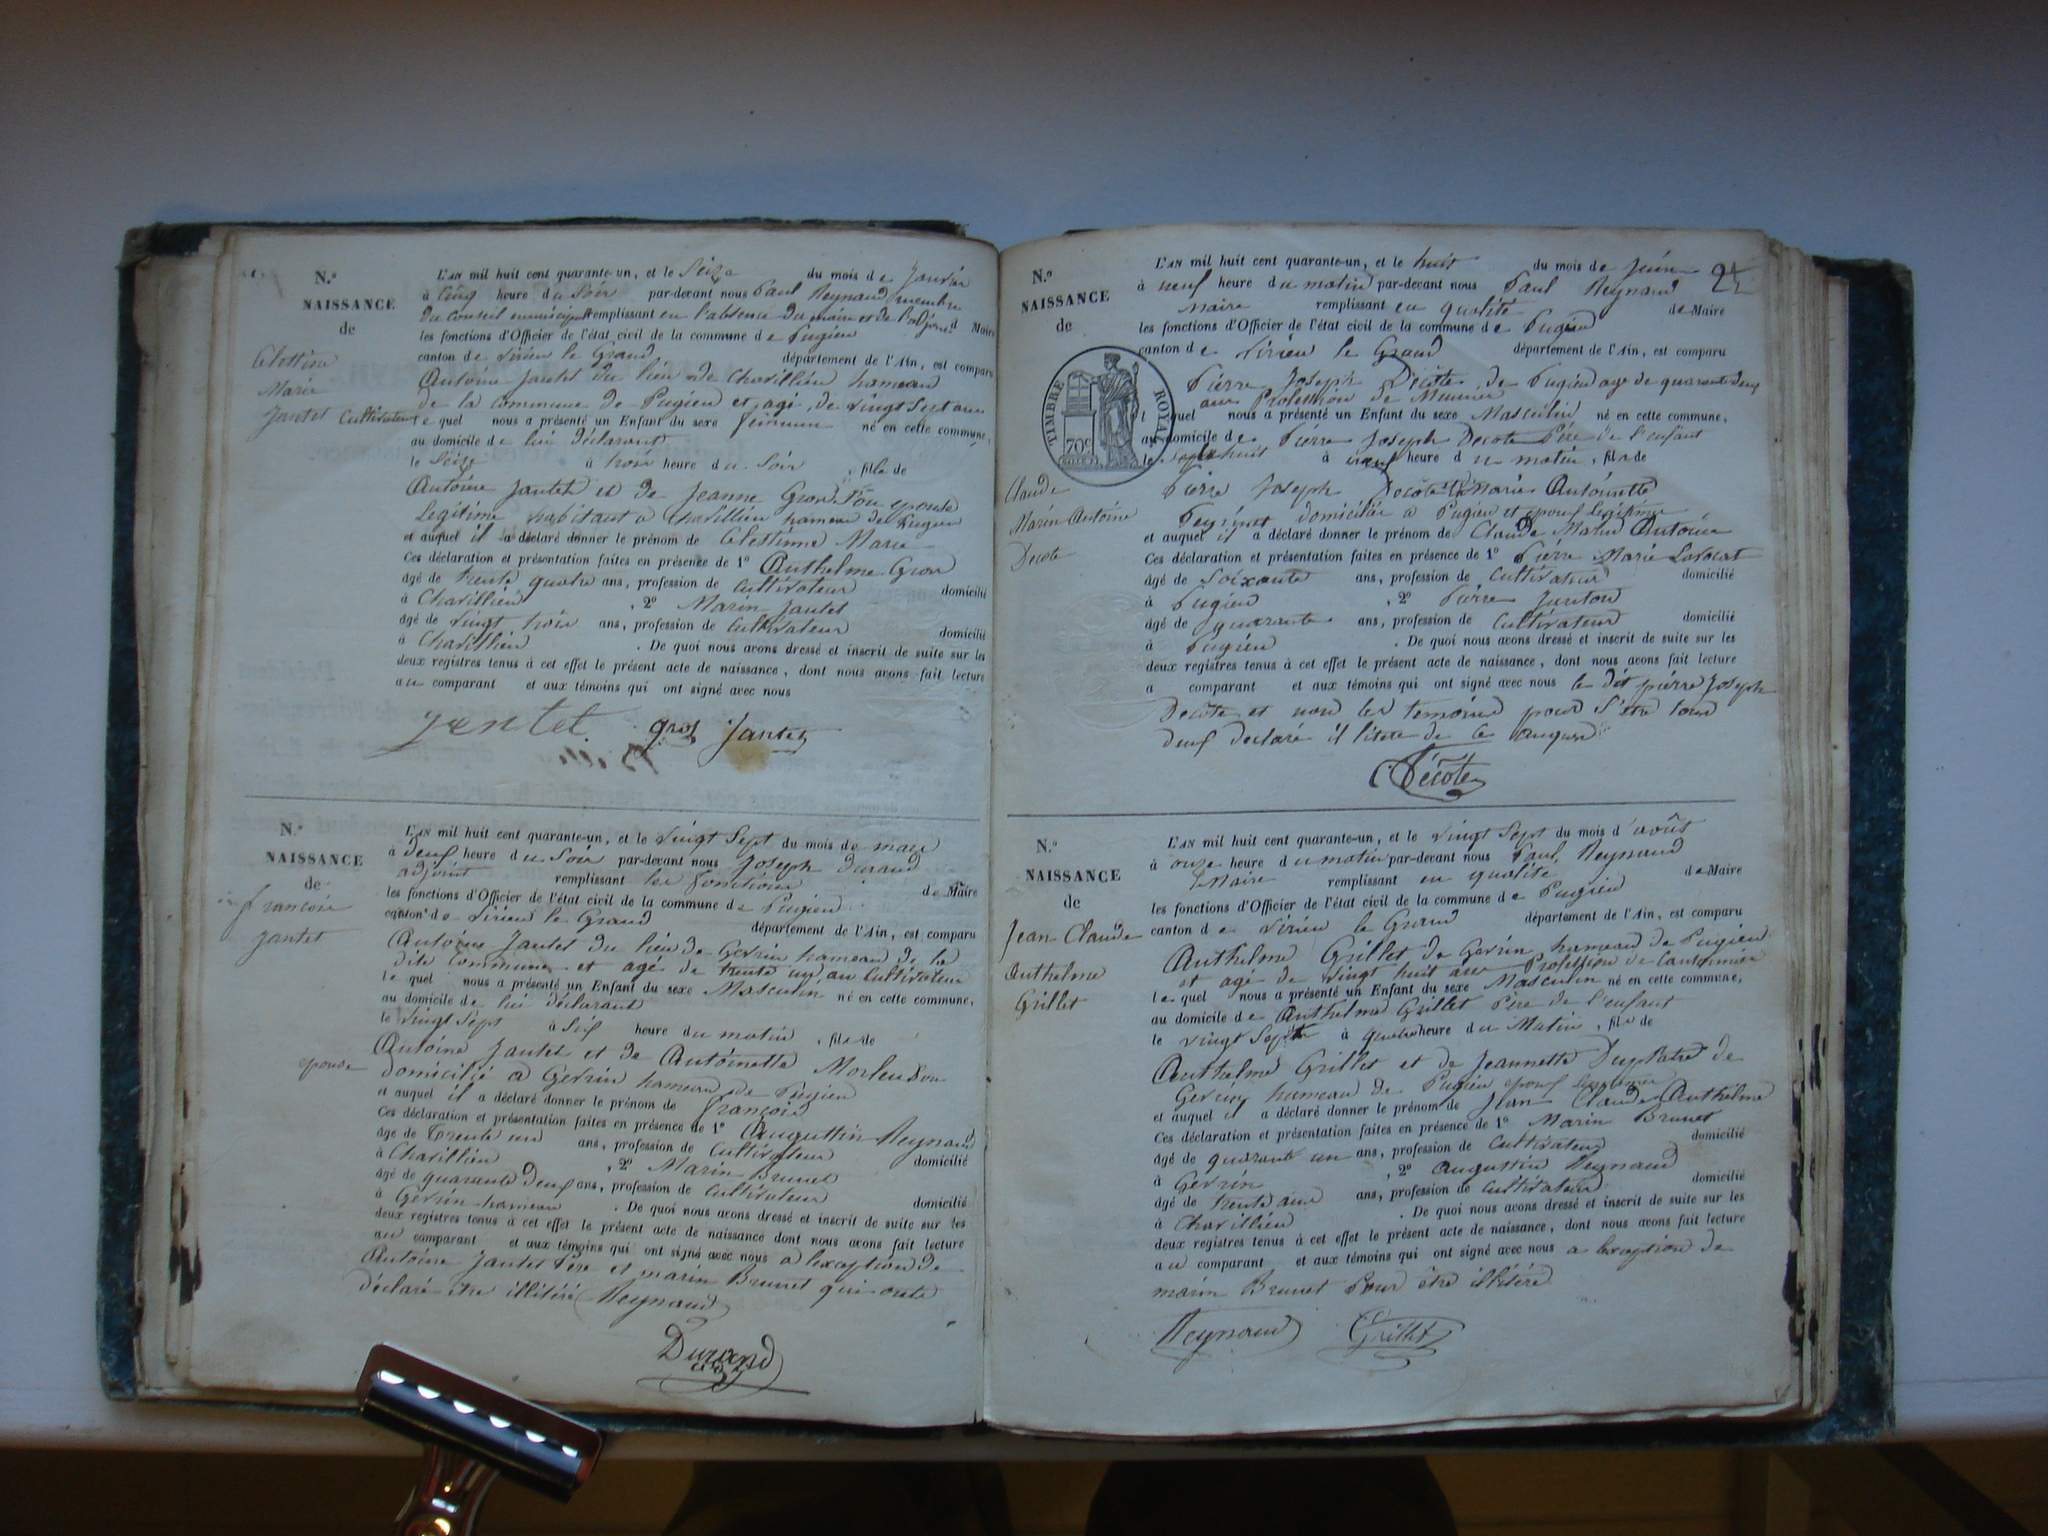 N.o
NAISSANCE
de
Celestine
Marie
Jantet
L'AN mil huit cent quarante-un, et le Seize du mois de Janvier
à Cinq heure du Soir par-devant nous Paul Reynaud membre
du Conseil municipal remplissant en l'absence du maire et de l'adjoint d Maire
les fonctions d'Officier de l'état civil de la commune de Pugieu
canton de Virieu le Grand département de l'Ain, est comparu
Antoine Jantet du lieu de Chavillieu hameau
de la Commune de Pugieu et agé de vingt Sept ans
Cultivateur le quel nous a présenté un Enfant du sexe feminin né en cette commune,
au domicile de lui déclarant
le Seize à trois heure du Soir , fille de
Antoine Jantet et de Jeanne Gros Son epouse
Legitime habitant a Chavillieu hameau de Pugieu
et auquel il a déclaré donner le prénom de Celestinne Marie
Ces déclaration et présentation faites en présence de 1o Anthelme Gros
âgé de trente quatre ans, profession de Cultivateur domicilié
à Chavillieu , 2o Marin Jantet
âgé de Vingt trois ans, profession de Cultivateur domicilié
à Chavillieu . De quoi nous avons dressé et inscrit de suite sur les
deux registres tenus à cet effet le présent acte de naissance, dont nous avons fait lecture
au comparant et aux témoins qui ont signé avec nous
Jantet gros Jantet
N.o
NAISSANCE
de
françois
Jantet
L'AN mil huit cent quarante-un, et le Vingt Sept du mois de mars
à deux heure du Soir par-devant nous Joseph Durand
adjoint remplissant les fonctions de Maire
les fonctions d'Officier de l'état civil de la commune de Pugieu
canton de Virieu le Grand département de l'Ain, est comparu
Antoine Jantet du lieu de Gevrin hameau de la
dite Commune et agé de trente un an Cultivateur
le quel nous a présenté un Enfant du sexe Masculin né en cette commune,
au domicile de lui déclarant
le Vingt Sept à Six heure du matin , fils de
Antoine Jantet et de Antoinette Son
epouse domicilié a Gevrin hameau de Pugieu
et auquel il a déclaré donner le prénom de françois
Ces déclaration et présentation faites en présence de 1o Auguttin Reynaud
âge de Trente un ans, profession de Cultivateur domicilié
à Chavillieu , 2o Marin Brunet
âgé de quarante Deux ans, profession de Cultivateur domicilié
à Gevrin hameau . De quoi nous avons dressé et inscrit de suite sur les
deux registres tenus à cet effet le présent acte de naissance dont nous avons fait lecture
au comparant et aux témoins qui ont signé avec nous a lexception de
Antoine Jantet Père et marin Brunet qui onte
déclaré être illitéré Reynaud
Durand
24
N.o
NAISSANCE
de
Claude
Marin Antoine
Decote
TIMBRE ROYAL
70c
L'AN mil huit cent quarante-un, et le huit du mois de Juin
à neuf heure du matin par-devant nous Paul Reynaud
maire remplissant en qualité de Maire
les fonctions d'Officier de l'état civil de la commune de Pugieu
canton de Virieu le Grand département de l'Ain, est comparu
Pierre Joseph Decote de Pugieu age de quarante deux
ans Profession de Meunier
l quel nous a présenté un Enfant du sexe Masculin né en cette commune,
au domicile de Pierre Joseph Decote Père de l'enfant
le huit à heure du matin , fils de
Pierre Joseph Decote et Marie Antoinette
domiciliée a Pugieu et epouse legitime
et auquel il a déclaré donner le prénom de Claude Marin Antoine
Ces déclaration et présentation faites en présence de 1o Pierre Marie Lavocat
âgé de Soixante ans, profession de Cultivateur domicilié
à Pugieu , 2o Pierre
âgé de quarante ans, profession de Cultivateur domicilié
à Pugieu . De quoi nous avons dressé et inscrit de suite sur les
deux registres tenus à cet effet le présent acte de naissance, dont nous avons fait lecture
a comparant et aux témoins qui ont signé avec nous le dit pierre Joseph
Decote et non les temoins pour s'être tous
deux declaré il litéré de ce
Decote
N.o
NAISSANCE
de
Jean Claude
Anthelme
Grillet
L'AN mil huit cent quarante-un, et le Vingt Sept du mois d'août
à onze heure du matin par-devant nous Paul Reynaud
Maire remplissant en qualité de Maire
les fonctions d'Officier de l'état civil de la commune de Pugieu
canton de Virieu le Grand département de l'Ain, est comparu
Anthelme Grillet de Gevrin hameau de Pugieu
et agé de Vingt huit ans Profession de Cantonnier
le quel nous a présenté un Enfant du sexe Masculin né en cette commune,
au domicile de Anthelme Grillet Père de l'enfant
le Vingt Sept à quatre heure du Matin , fils de
Anthelme Grillet et de Jeannette de
Gevrin hameau de Pugieu epoux legitimes
et auquel il a déclaré donner le prénom de Jean Claude Anthelme
Ces déclaration et présentation faites en présence de 1o Marin Brunet
âgé de quarante un ans, profession de Cultivateur domicilié
à Gevrin , 2o Auguttin Reynaud
âgé de trente ans, profession de Cultivateur domicilié
à Chavillieu . De quoi nous avons dressé et inscrit de suite sur les
deux registres tenus à cet effet le présent acte de naissance, dont nous avons fait lecture
au comparant et aux témoins qui ont signé avec nous a lexception de
marin Brunet Pour être illitéré
Reynaud Grillet